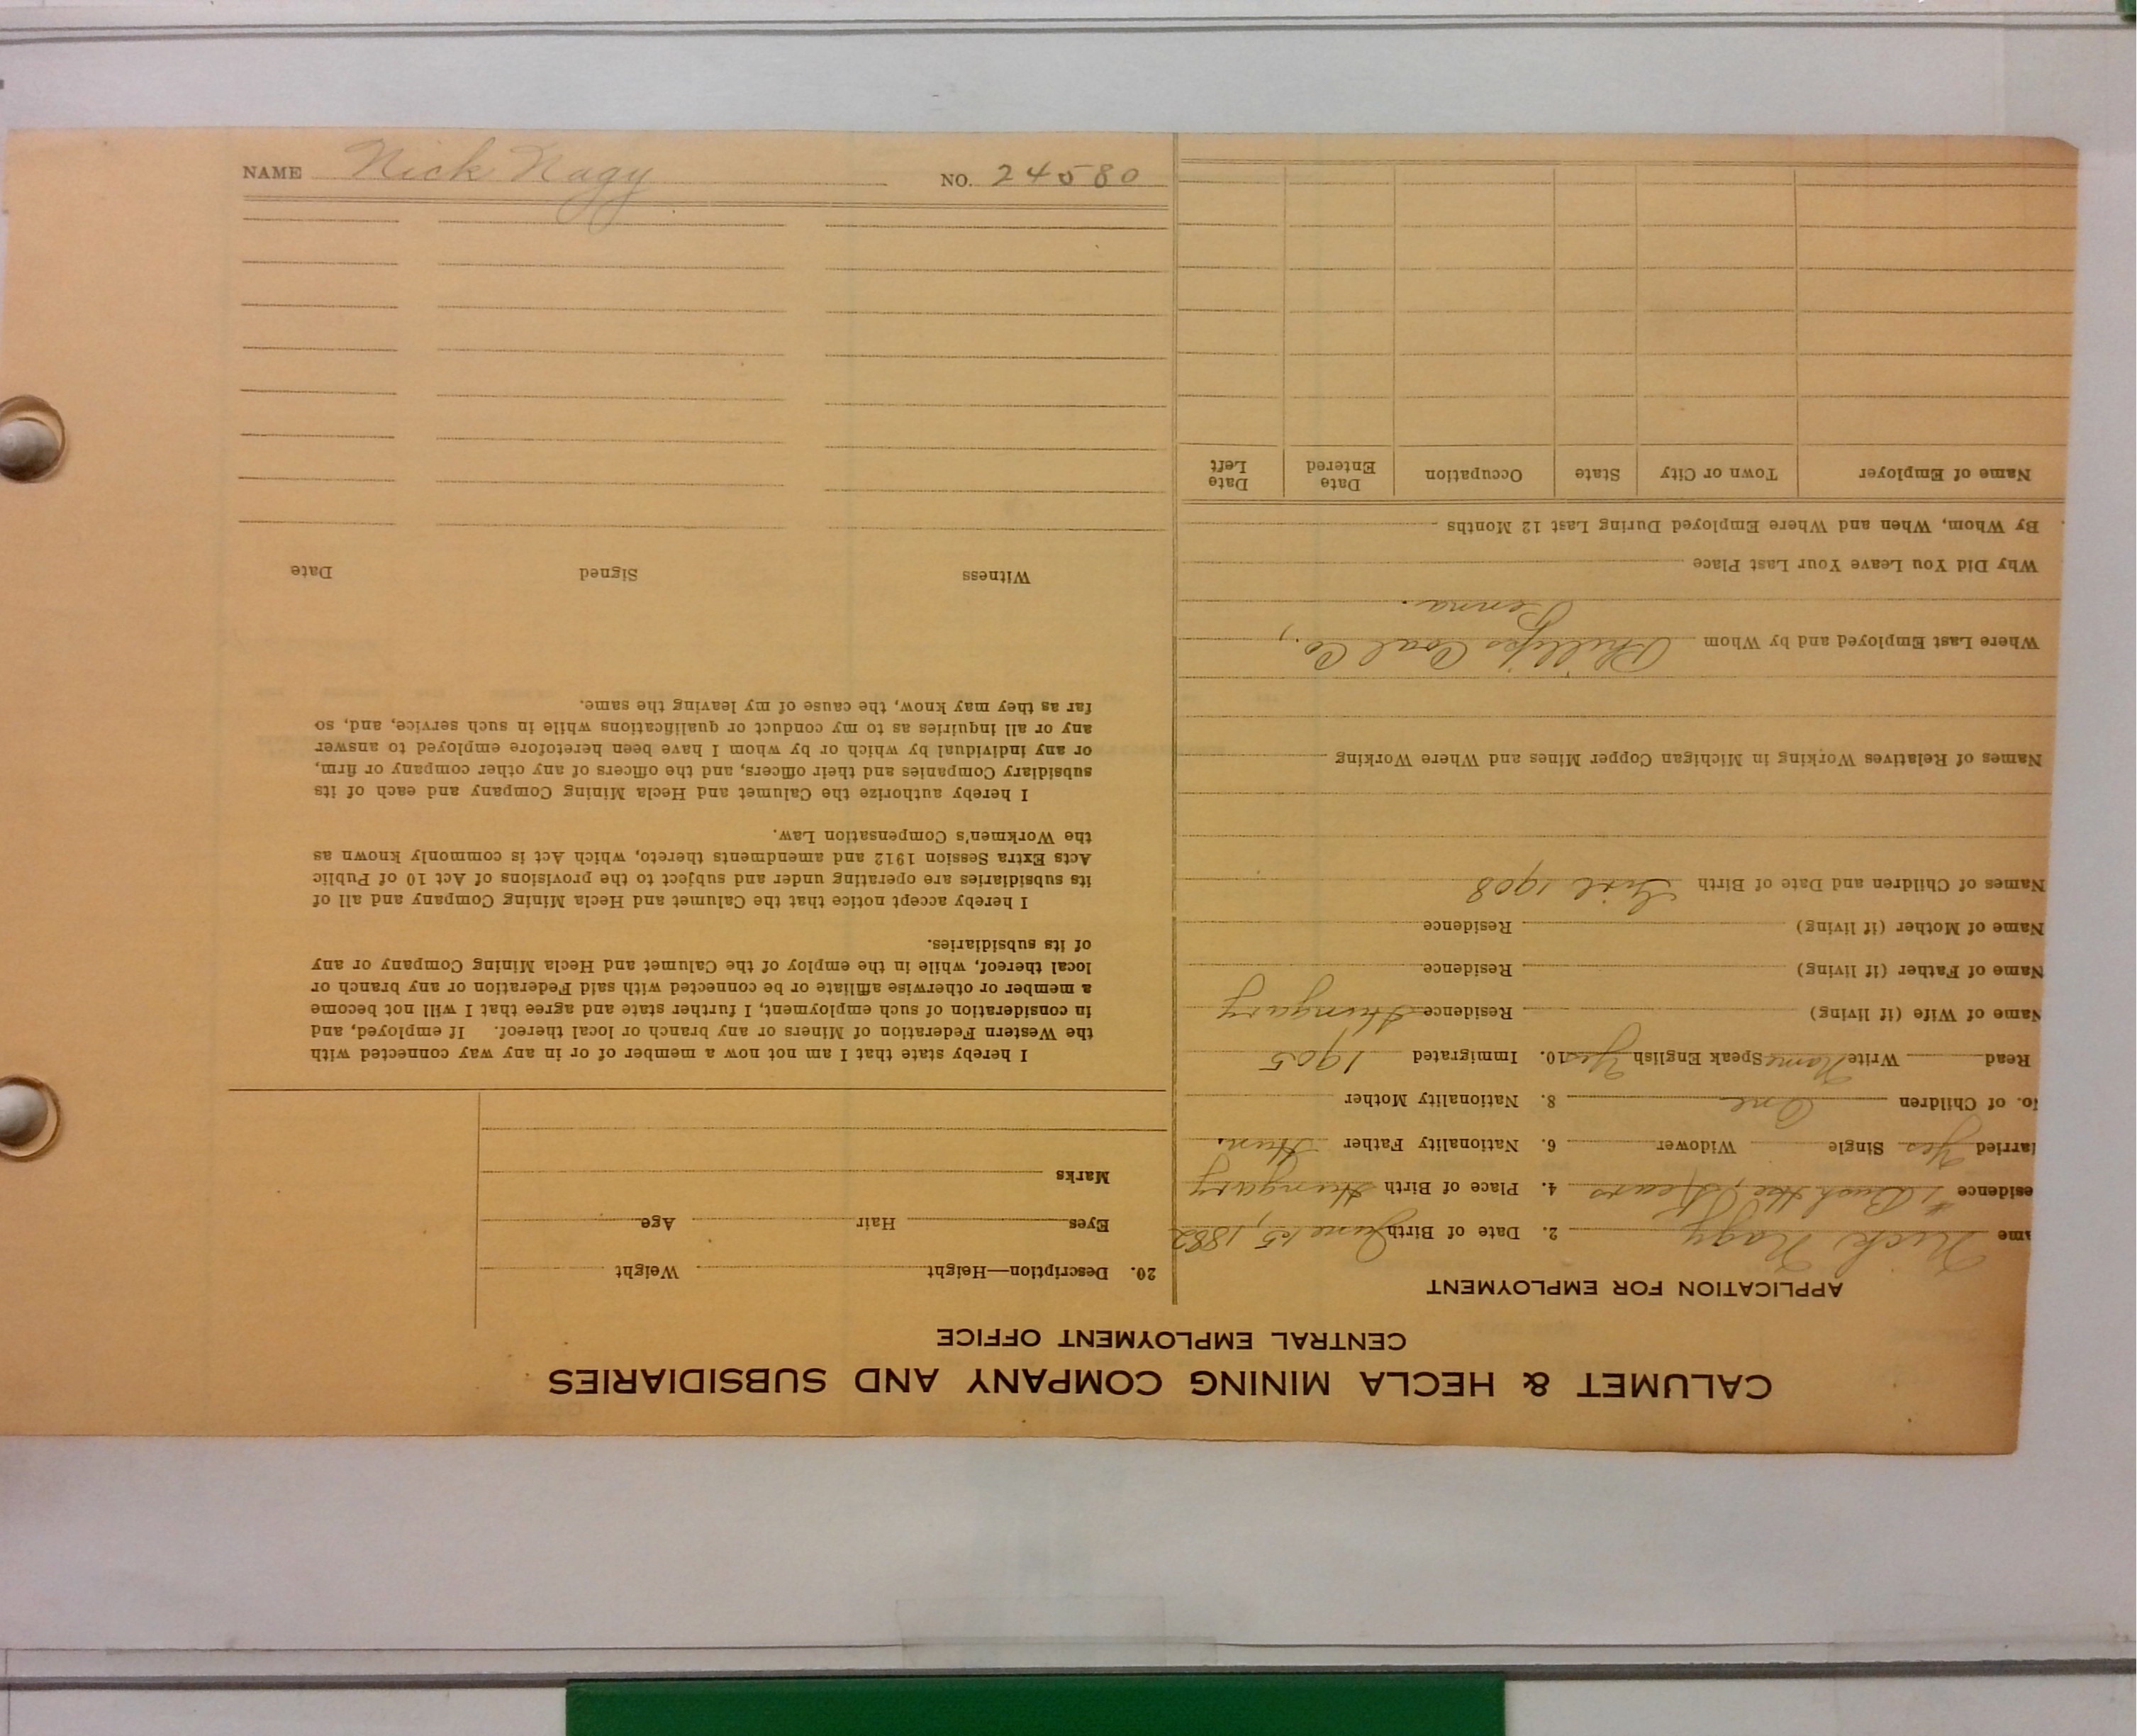 NAME Nick Nagy NO. 24580
CALUMET & HECLA MINING COMPANY AND SUBSIDIARIES
CENTRAL EMPLOYMENT OFFICE
APPLICATION FOR EMPLOYMENT
ame Nick Nagy 2. Date of Birth June 15, 1882
esidence #1 Bush Hse, 4. Place of Birth Hungary
arried Yes Single Widower 6. Nationality Father Hun.
o. of Children One 8. Nationality Mother
Read Write Name Speak English Yes 10. Immigrated 1905
Name of Wife (if living) Residence Hungary
Name of Father (if living) Residence
Name of Mother (if living) Residence
Names of Children and Date of Birth Girl 1908
Names of Relatives Working in Michigan Copper Mines and Where Working
Where Last Employed and by Whom Phillips Coal Co.,
Penna.
Why Did You Leave Your Last Place
By Whom, When and Where Employed During Last 12 Months
Name of Employer Town or City State Occupation Date Entered Date Left
20. Description—Height Weight
Eyes Hair Age
Marks
I hereby state that I am not now a member of or in any way connected with
the Western Federation of Miners or any branch or local thereof. If employed, and
in consideration of such employment, I further state and agree that I will not become
a member or otherwise affiliate or be connected with said Federation or any branch or
local thereof, while in the employ of the Calumet and Hecla Mining Company or any
of its subsidiaries.
I hereby accept notice that the Calumet and Hecla Mining Company and all of
its subsidiaries are operating under and subject to the provisions of Act 10 of Public
Acts Extra Session 1912 and amendments thereto, which Act is commonly known as
the Workmen's Compensation Law.
I hereby authorize the Calumet and Hecla Mining Company and each of its
subsidiary Companies and their officers, and the officers of any other company or firm,
or any individual by which or by whom I have been heretofore employed to answer
any or all inquiries as to my conduct or qualifications while in such service, and, so
far as they may know, the cause of my leaving the same.
Witness Signed Date